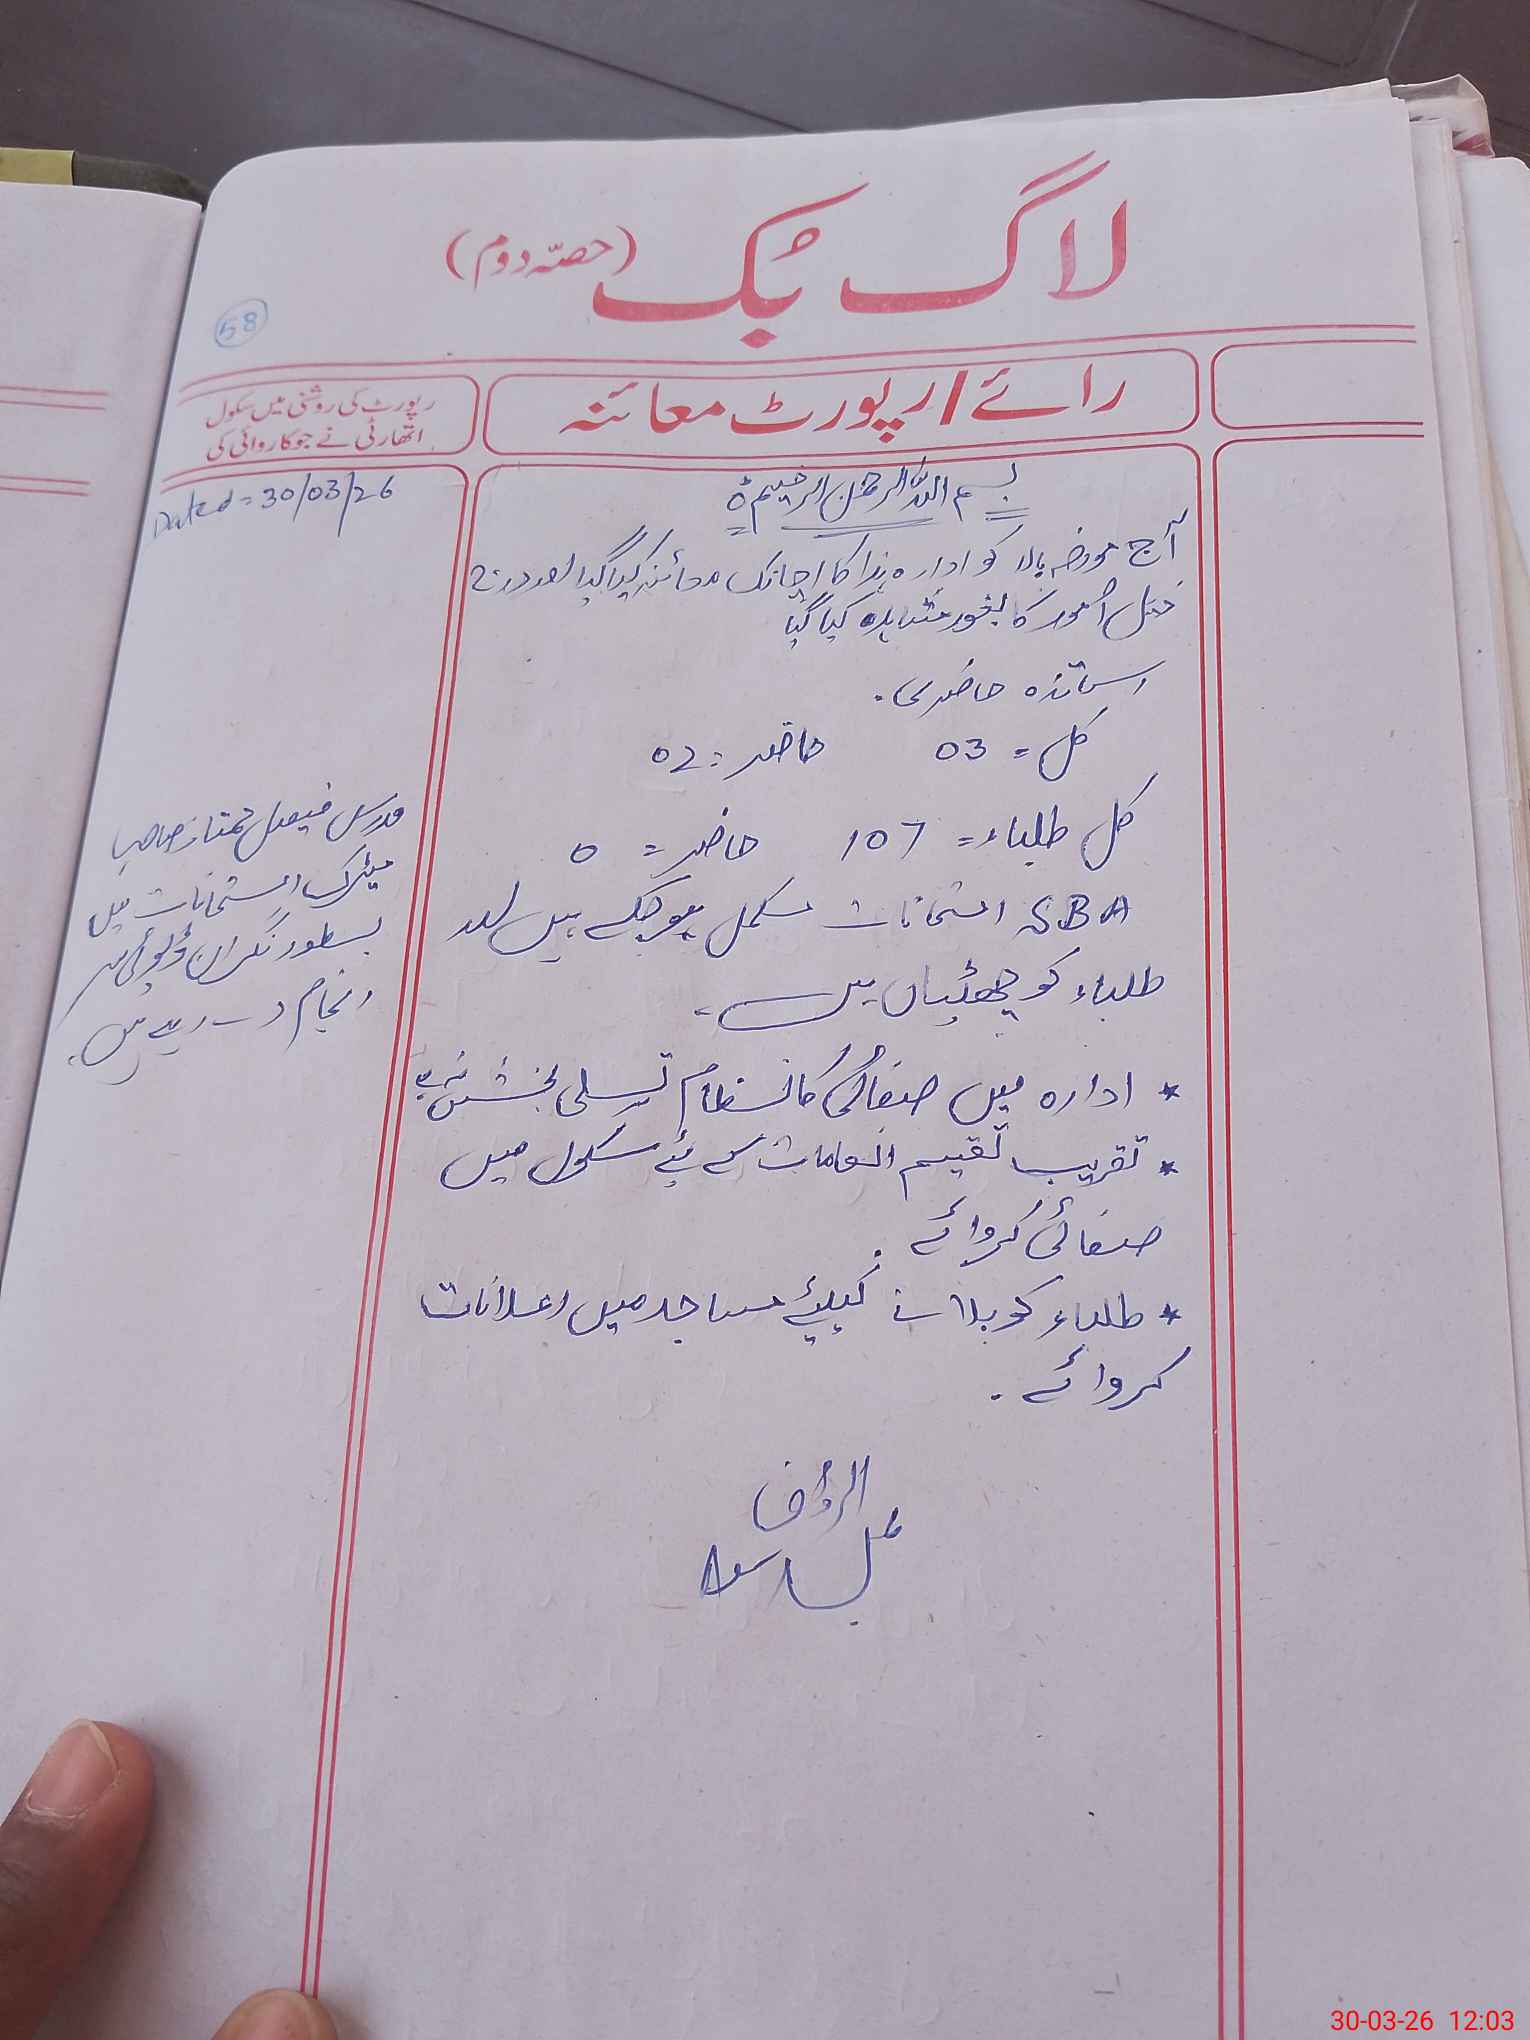 لاگ بُک (حصّہ دوم)
58
رائے/رپورٹ معائنہ
رپورٹ کی روشنی میں سکول
اتھارٹی نے جو کاروائی کی
Dated = 30/03/26
بسم اللہ الرحمٰن الرحیم ہ
آج مورخہ بالا کو ادارہ ہذا کا اچانک معائنہ کیا گیا اور درج
ذیل امور کا بغور مشاہدہ کیا گیا
اساتذہ حاضری.
کل = 03 حاضر = 02
کل طلباء = 107 حاضر = 0
SBA امتحانات مکمل ہو چکے ہیں اور
طلباء کو چھٹیاں ہیں۔
* ادارہ میں صفائی کا انتظام تسلی بخش
* تقریب تقسیم انعامات کے لئے سکول میں
صفائی کروائے .
* طلباء کو بلانے کیلئے مساجد میں اعلانات
کروائے .
مدرس فیصل ممتاز صاحب
میٹرک امتحانات میں
بطور نگران ڈیوٹی سر
انجام دے رہے ہیں۔
30-03-26 12:03